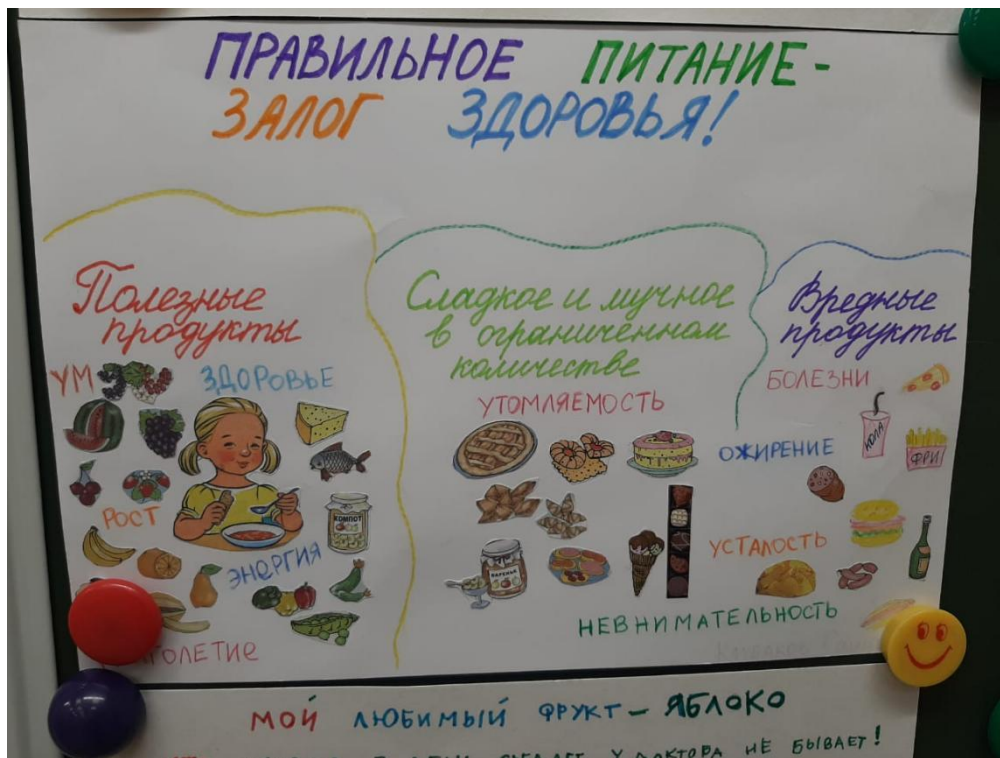 ПРАВИЛЬНОЕ ПИТАНИЕ-
ЗАЛОГ ЗДОРОВЬЯ!
Полезные
продукты
УМ
ЗДОРОВЬЕ
КОМПОТ
РОСТ
ЭНЕРГИЯ
Сладкое и мучное
в ограниченном
количестве
УТОМЛЯЕМОСТЬ
ВАРЕНЬЕ
Вредные
продукты
БОЛЕЗНИ
КОЛА
ФРИ
ОЖИРЕНИЕ
УСТАЛОСТЬ
НЕВНИМАТЕЛЬНОСТЬ
МОЙ ЛЮБИМЫЙ ФРУКТ - ЯБЛОКО
У ДОКТОРА НЕ БЫВАЕТ!